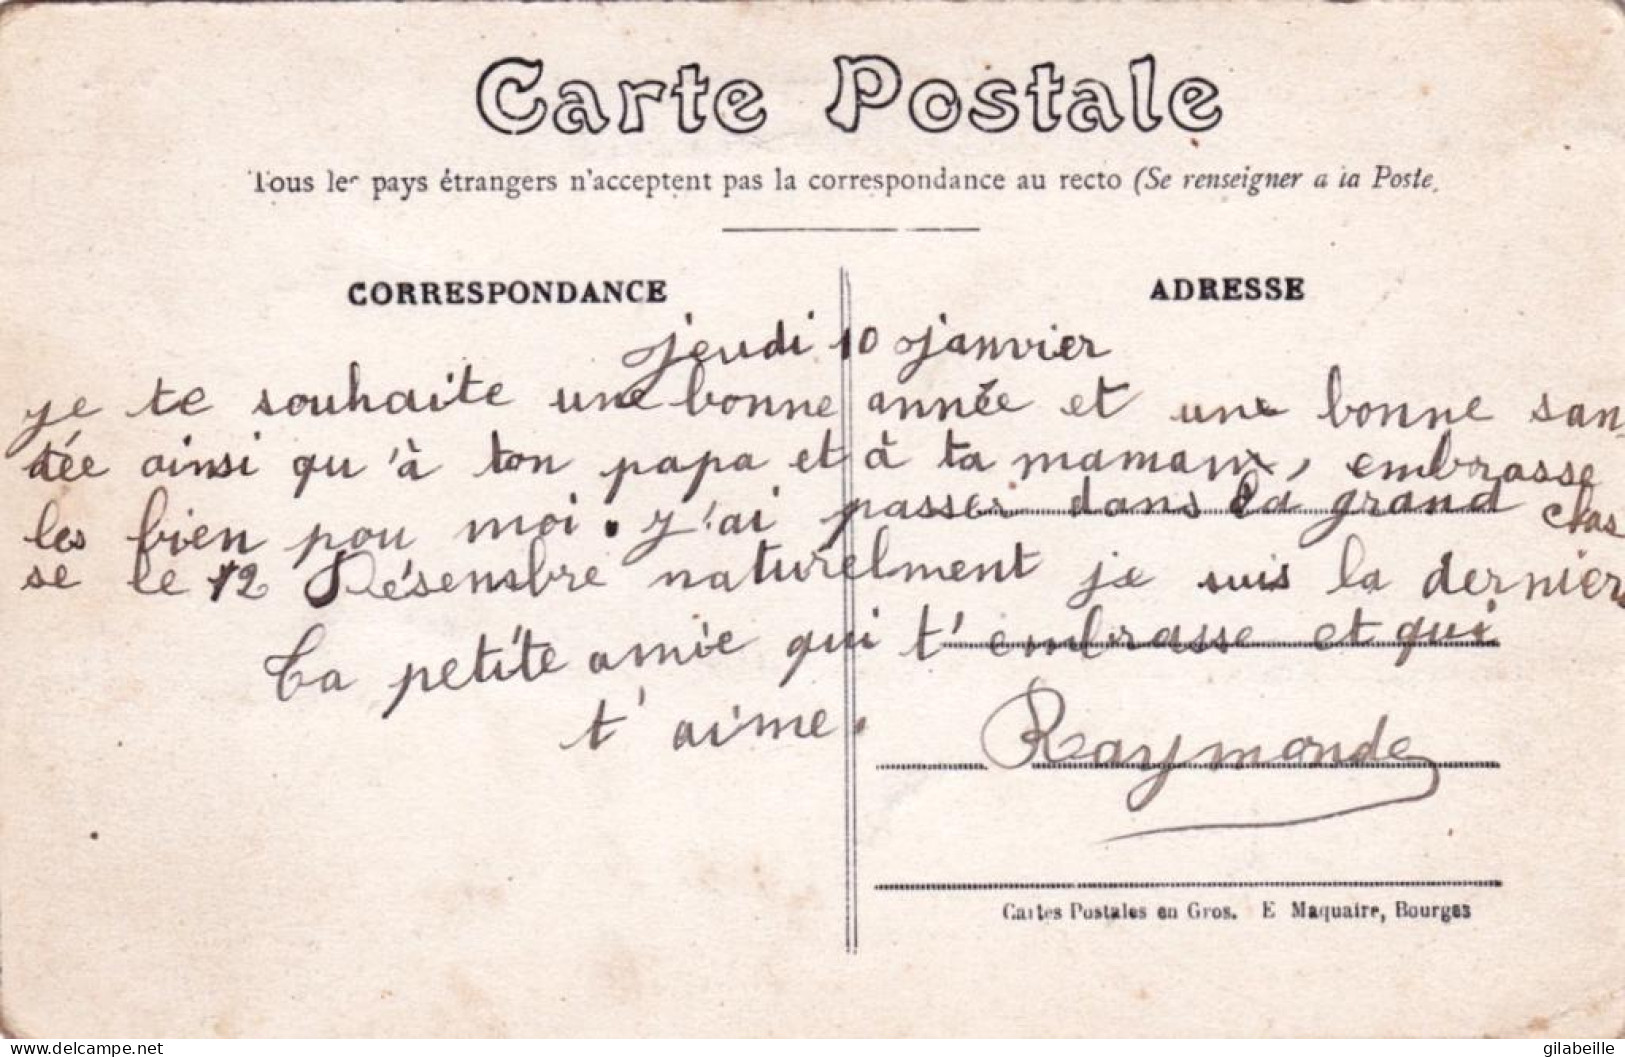 Carte Postale
Tous les pays étrangers n'acceptent pas la correspondance au recto (Se renseigner a la Poste,
CORRESPONDANCE
ADRESSE
jeudi 10 janvier
je te souhaite une bonne année et une bonne san-
tée ainsi qu'à ton papa et à ta maman, embrasse
les bien pou moi. j'ai passer dans la grand clas
se le 12 Désensbre naturelment je suis la dernier
Ta petite amie qui t'embrasse et qui
t'aime.
Raymonde
Cartes Postales en Gros. E Maquaire, Bourges
https://www.delcampe.net
gilabeille